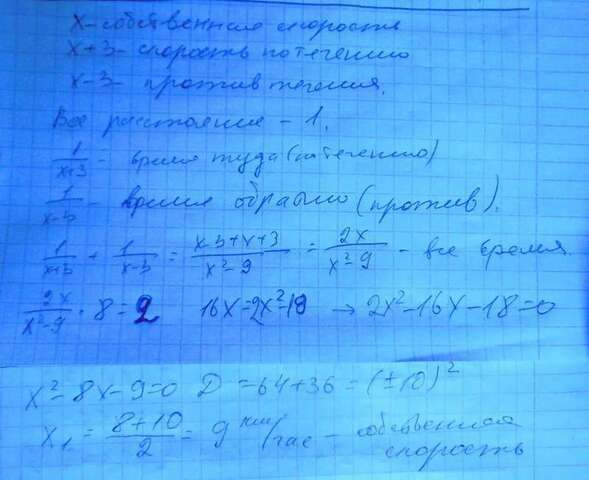 x - собственная скорость
x+3 - скорость по течению
x-3 - против течения.
Все расстояние - 1.
1/(x+3) - время туда (по течению)
1/(x-3) - время обратно (против).
1/(x+3) + 1/(x-3) = (x-3+x+3)/(x²-9) = 2x/(x²-9) - все время
2x/(x²-9) · 8 = 2 16x = 2x²-18 → 2x²-16x-18=0
x²-8x-9=0 D = 64+36 = (±10)²
x₁ = (8+10)/2 = 9 км/час - собственная скорость